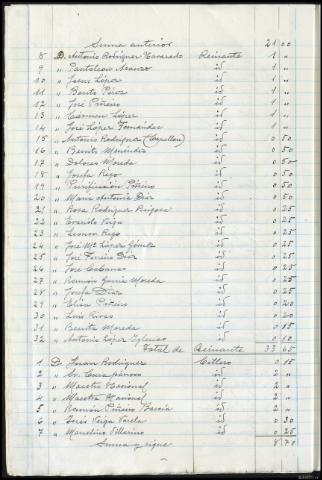 Suma anterior 21 00
8 D. Antonio Rodríguez Reinante id 1 "
9 " Pantaleón id 1 "
10 " Jesús López id 1 "
11 " Benito Pérez id 1 "
12 " José Piñeiro id 1 "
13 " Carmen López id 1 "
14 " José López Fernández id 1 "
15 " Antonio Rodríguez (Capellán) id 0 50
16 " Benito Menéndez id 0 50
17 " Dolores Moreda id 0 50
18 " Josefa Rego id 0 50
19 " Purificación Piñeiro id 0 50
20 " María Antonia Díaz id 0 50
21 " Rosa Rodríguez id 0 25
22 " Veiga id 0 25
23 " Rego id 0 25
24 " José Mª López Gómez id 0 25
25 " José Díaz id 0 25
26 " José Cabanas id 0 25
27 " Ramón García Moreda id 0 25
28 " Josefa Díaz id 0 25
29 " Elisa Piñeiro id 0 20
30 " Luis Rivas id 0 20
31 " Benita Moreda id 0 15
32 " Antonio López Iglesias id 0 10
Total de Reinante 33 65
1 D. Juan Rodríguez Cillero id 5 "
2 " Sr. Cura párroco id 2 "
3 " Maestro Nacional id 2 "
4 " Maestra Nacional id 2 "
5 " Ramón Piñeiro García id 2 "
6 " José Veiga Varela id 0 30
7 " Marcelino Villarino id 0 25
Suma y sigue 8 70